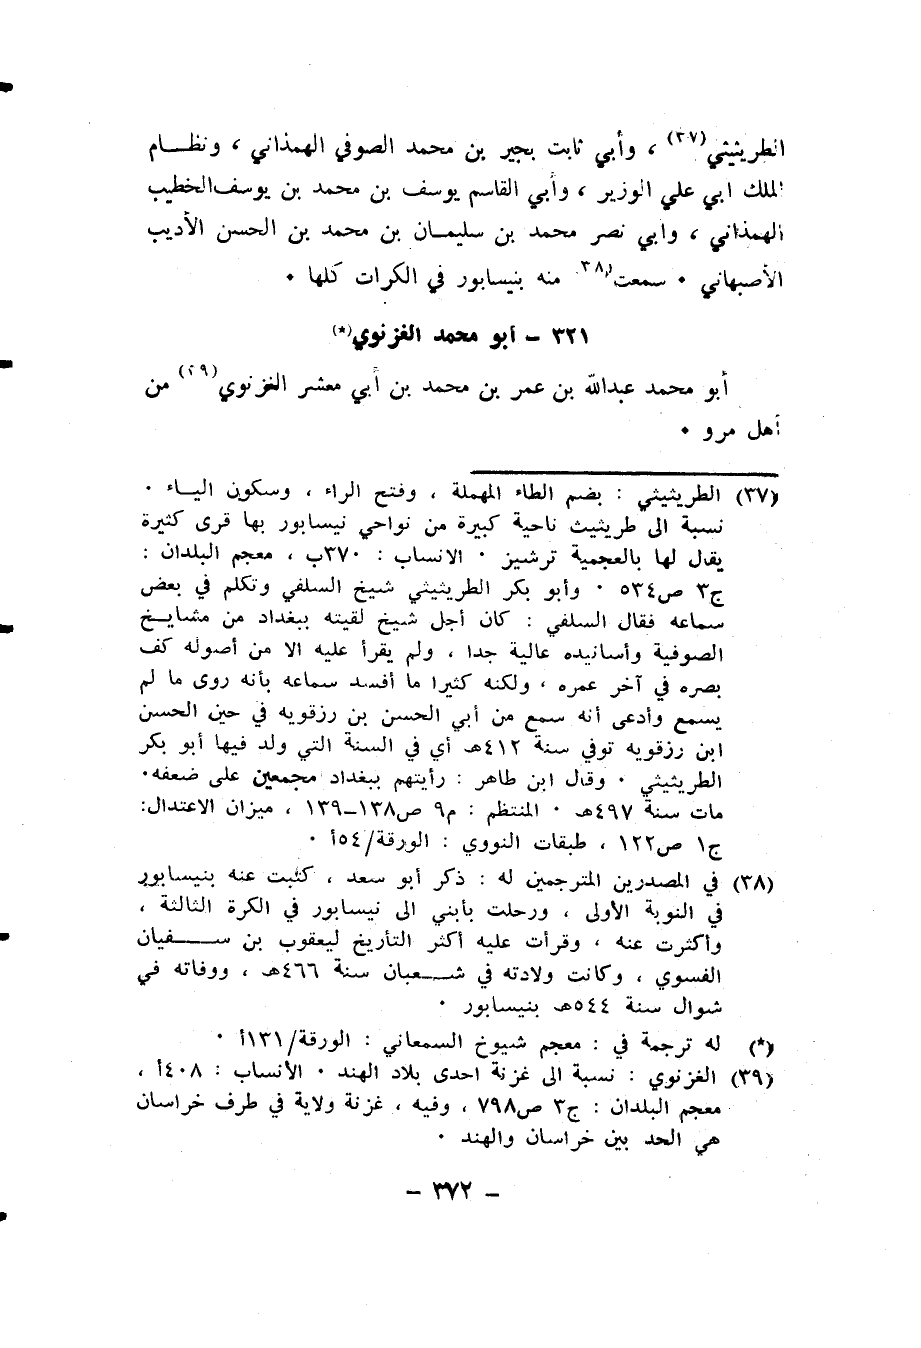 الطريثيثي(٣٧) ، وأبي ثابت بجير بن محمد الصوفي الهمذاني ، ونظـــام
الملك ابي علي الوزير ، وأبي القاسم يوسف بن محمد بن يوسف الخطيب
الهمذاني ، وابي نصر محمد بن سليمـان بن محمد بن الحسن الأديب
الأصبهاني ٠ سمعت(٣٨) منه بنيسابور في الكرات كلها ٠
٣٢١ – أبو محمد الغزنوي(*)
أبو محمد عبدالله بن عمر بن محمد بن أبي معشر الغزنوي(٣٩) من
أهل مرو ٠
(٣٧) الطريثيثي : بضم الطاء المهملة ، وفتح الراء ، وسكون اليـاء ٠
نسبة الى طريثيث ناحية كبيرة من نواحي نيسابور بها قرى كثيرة
يقال لها بالعجمية ترشيز ٠ الانساب : ٣٧٠ب ، معجم البلدان :
ج٣ ص٥٣٤ ٠ وأبو بكر الطريثيثي شيخ السلفي وتكلم في بعض
سماعه فقال السلفي : كان أجل شيخ لقيته ببغداد من مشايـخ
الصوفية وأسانيده عالية جدا ، ولم يقرأ عليه الا من أصوله كف
بصره في آخر عمره ، ولكنه كثيرا ما أفسد سماعه بأنه روى ما لم
يسمع وأدعى أنه سمع من أبي الحسن بن رزقويه في حين الحسن
ابن رزقويه توفي سنة ٤١٢هـ أي في السنة التي ولد فيها أبو بكر
الطريثيثي ٠ وقال ابن طاهر : رأيتهم ببغداد مجمعين على ضعفه٠
مات سنة ٤٩٧هـ ٠ المنتظم : م٩ ص١٣٨–١٣٩ ، ميزان الاعتدال:
ج١ ص١٢٢ ، طبقات النووي : الورقة/٥٤أ ٠
(٣٨) في المصدرين المترجمين له : ذكر أبو سعد ، كتبت عنه بنيسابور
في النوبة الأولى ، ورحلت بأبني الى نيسابور في الكرة الثالثة ،
وأكثرت عنه ، وقرأت عليه أكثر التأريخ ليعقوب بن ســـفيان
الفسوي ، وكانت ولادته في شـــعبان سنة ٤٦٦هـ ، ووفاته في
شوال سنة ٥٤٤هـ بنيسابور ٠
(*) له ترجمة في : معجم شيوخ السمعاني : الورقة/١٣١أ ٠
(٣٩) الغزنوي : نسبة الى غزنة احدى بلاد الهند ٠ الأنساب : ٤٠٨أ ،
معجم البلدان : ج٣ ص٧٩٨ ، وفيه ، غزنة ولاية في طرف خراسان
هي الحد بين خراسان والهند ٠
– ٣٧٢ –